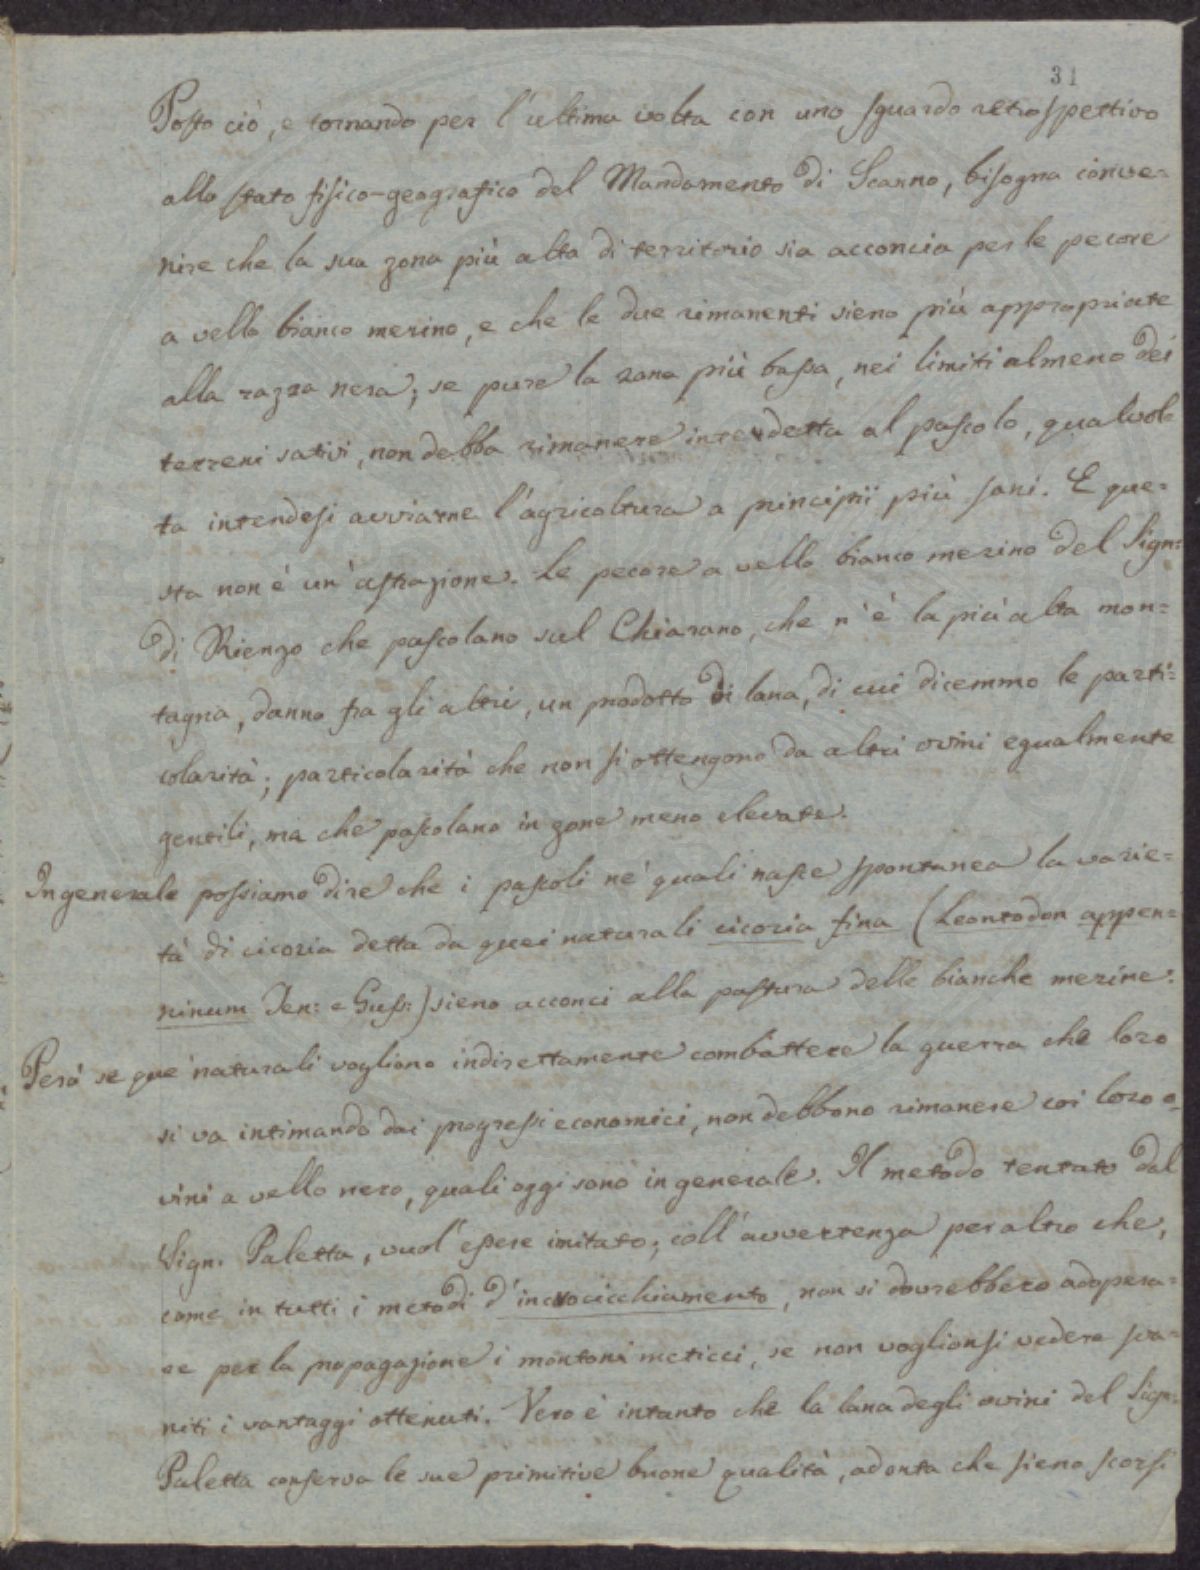 31
Posto ciò, e tornando per l'ultima volta con uno sguardo retrospettivo
allo stato fisico-geografico del Mandamento di Scanno, bisogna conve=
nire che la sua zona più alta di territorio sia acconcia per le pecore
a vello bianco merino, e che le due rimanenti sieno più appropriate
alla razza nera; se pure la zona più bassa, nei limiti almeno dei
terreni sativi, non debba rimanere interdetta al pascolo, qualvol=
ta intendesi avviarne l'agricoltura a principii più sani. E que=
sta non è un'astrazione. Le pecore a vello bianco merino del Sign:
di Rienzo che pascolano sul Chiarano, che n'è la più alta mon=
tagna, danno fra gli altri, un prodotto di lana, di cui dicemmo le parti=
colarità; particolarità che non si ottengono da altri ovini egualmente
gentili, ma che pascolano in zone meno elevate.
In generale possiamo dire che i pascoli ne' quali nasce spontanea la varie=
tà di cicoria detta da quei naturali cicoria fina (Leontodon appen=
ninum Ten: e Guss:) sieno acconci alla pastura delle bianche merine.
Però se que' naturali vogliono indirettamente combattere la guerra che loro
si va intimando dai progressi economici, non debbono rimanere coi loro o=
vini a vello nero, quali oggi sono in generale. Il metodo tentato dal
Sign. Paletta, vuol essere imitato; coll'avvertenza per altro che,
come in tutti i metodi d'incrocicchiamento, non si dovrebbero adopera=
re per la propagazione i montoni meticci, se non voglionsi vedere sva=
niti i vantaggi ottenuti. Vero è intanto che la lana degli ovini del Sign:
Paletta conserva le sue primitive buone qualità, ad onta che sieno scorsi